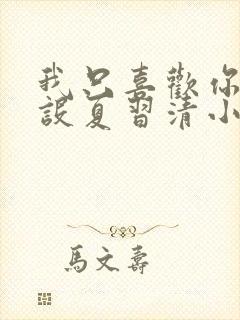 我只喜歡你
設夏習清小
馬文壽